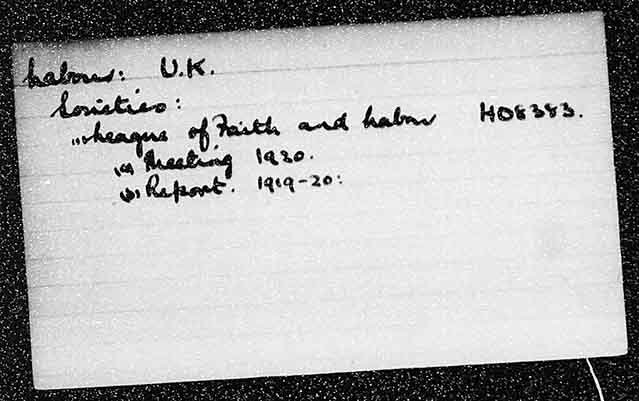 Labour: U.K.
Societies:
(1) League of Faith and Labour HD8383.
(a) Meeting 1920.
(b) Report. 1919-20: